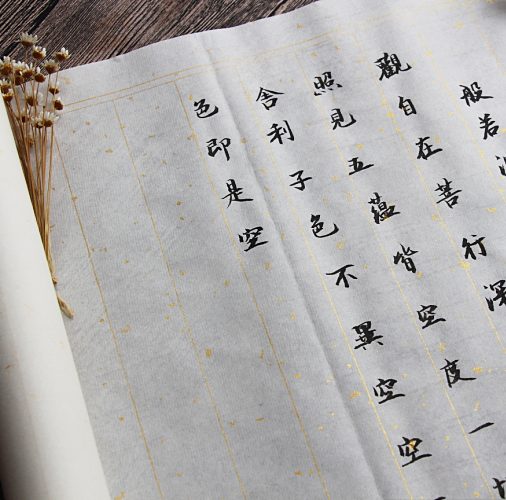 般若
觀自在菩行深
照見五蘊皆空度一
舍利子色不異空空
色即是空